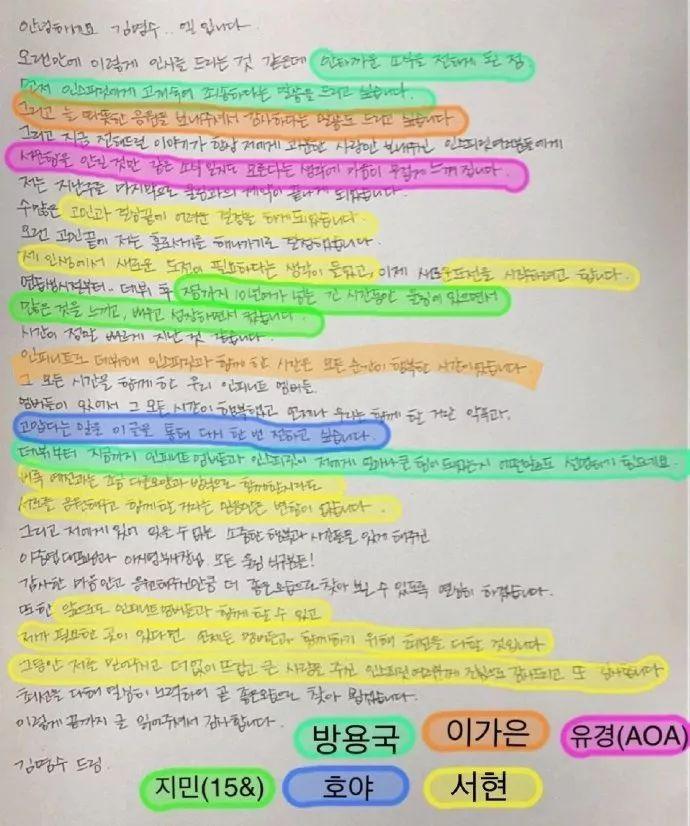 안녕하세요 김명수.. 엘 입니다
오랜만에 이렇게 인사를 드리는 것 같은데 안타까운 소식을 전하게 된 점
먼저 인스피릿에게 고개숙여 죄송하다는 말씀을 드리고 싶습니다.
그리고 늘 따뜻한 응원을 보내주셔서 감사하다는 말씀도 드리고 싶습니다
그리고 지금 전해드릴 이야기가 항상 저에게 과분한 사랑만 보내주신 인스피릿여러분들에게
서운함을 안길 것만 같은 소식일지도 모른다는 생각에 마음이 무겁게 느껴집니다.
저는 지난 을 마지막으로 울림과의 계약이 끝나게 되었습니다.
수많은 고민과 걱정끝에 어려운 결정을 하게되었습니다.
오랜 고민끝에 저는 홀로서기를 해나가기로 결정했습니다.
제 인생에서 새로운 도전이 필요하다는 생각이 들었고, 이제 새로운도전을 시작하려고 합니다.
연습생시절부터.. 데뷔 후 지금까지 10년여가 넘는 긴 시간동안 울림에 있으면서
많은 것을 느끼고, 배우고 성장하면서 컸습니다.
시간이 정말 빠르게 지난 것 같습니다.
인피니트로 데뷔해 인스피릿과 함께 한 시간은 모든 순간이 행복한 시간이었습니다.
그 모든 시간을 함께 한 우리 인피니트 멤버들.
멤버들이 있어서 그 모든 시간이 행복했고 언제나 우리는 함께 할 거란 약속과.
고맙다는 말을 이 글을 통해 다시 한 번 전하고 싶습니다.
데뷔부터 지금까지 인피니트 멤버들과 인스피릿이 저에게 얼마나 큰 힘이 되었는지 어떤말로도 설명하기 힘드네요.
비록 예전과는 조금 다른모양과 방식으로 함께할지라도
서로를 응원해주고 함께할 거라는 믿음만은 변함이 없습니다.
그리고 저에게 있어 잊을 수 없는 소중한 행복과 시간들을 있게 해주신
이중엽대표님과 이사님 모든 울림 식구분들!
감사한 마음 안고 응원해주신만큼 더 좋은모습으로 찾아 뵐 수 있도록 열심히 하겠습니다.
또한 앞으로도 인피니트멤버들과 함께 할 수 있고
제가 필요한 곳이 있다면 언제든 멤버들과 함께하기 위해 최선을 다할 것입니다
그동안 저를 믿어주시고 더없이 뜨겁고 큰 사랑을 주신 인스피릿 여러분께 진심으로 감사드리고 또 감사합니다
최선을 다해 열심히 노력하여 곧 좋은모습으로 찾아 뵙겠습니다.
이렇게 끝까지 글 읽어주셔서 감사합니다.
김명수 드림.
방용국 이가은 유경(AOA)
지민(15&) 호야 서현